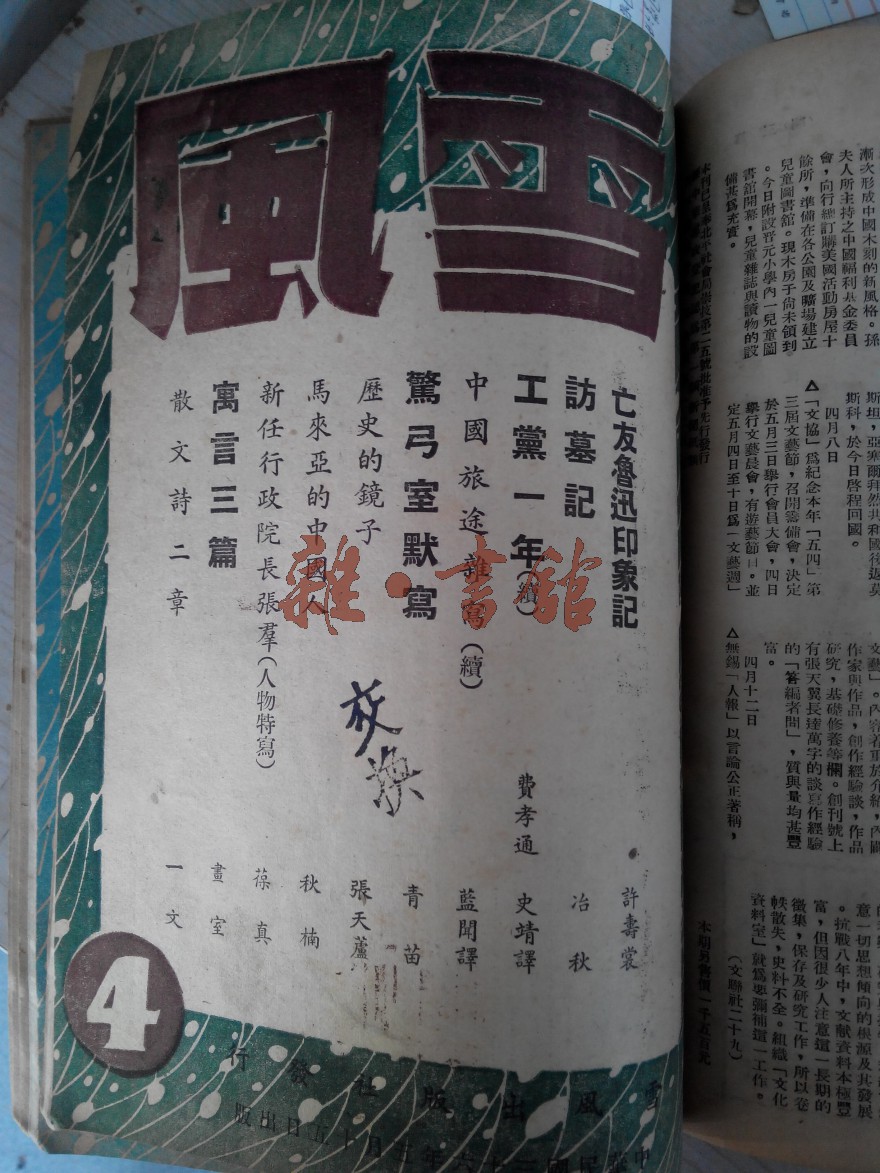 雪風
亡友魯迅印象記 許壽裳
訪墓記 冶秋
工黨一年(續) 費孝通 史靖譯
中國旅途雜寫(續) 藍聞譯
驚弓室默寫 青苗
歷史的鏡子 張天蘆
馬來亞的中國人 秋楠
新任行政院長張羣(人物特寫) 葆真
寓言三篇 畫室
散文詩二章 一文
交換
雜·書館
4
雪風出版社發行
中華民國三十六年五月十五日出版
漸次形成中國木刻的新風格。孫
夫人所主持之中國福利基金委員
會,向行總訂購美國活動房屋十
餘所,準備在各公園及曠場建立
兒童圖書館。現木房子尚未領到
。今日附設晉元小學內一兒童圖
書館開幕,兒童雜誌與讀物的設
備甚爲充實。
斯坦,亞塞爾拜然共和國後返莫
斯科,於今日啓程回國。
四月八日
△「文協」爲紀念本年「五四」第
三屆文藝節,召開籌備會,決定
於五月三日舉行會員大會,四日
舉行文藝晚會,有遊藝節目。並
定五月四日至十日爲「文藝週」
作家與作品,創作經驗談,作品
研究,基礎修養等欄。創刊號上
有張天翼長達萬字的談寫作經驗
的「答編者問」,質與量均甚豐
富。
四月十二日
△無錫「人報」以言論公正著稱,
意一切思想傾向的根源及其發展
。抗戰八年中,文献資料本極豐
富,但因很少人注意這一長期的
徵集,保存及研究工作,所以卷
帙散失,史料不全。組織「文化
資料室」就爲要彌補這一工作。
(文聯社二十九)
本期另售價一千五百元